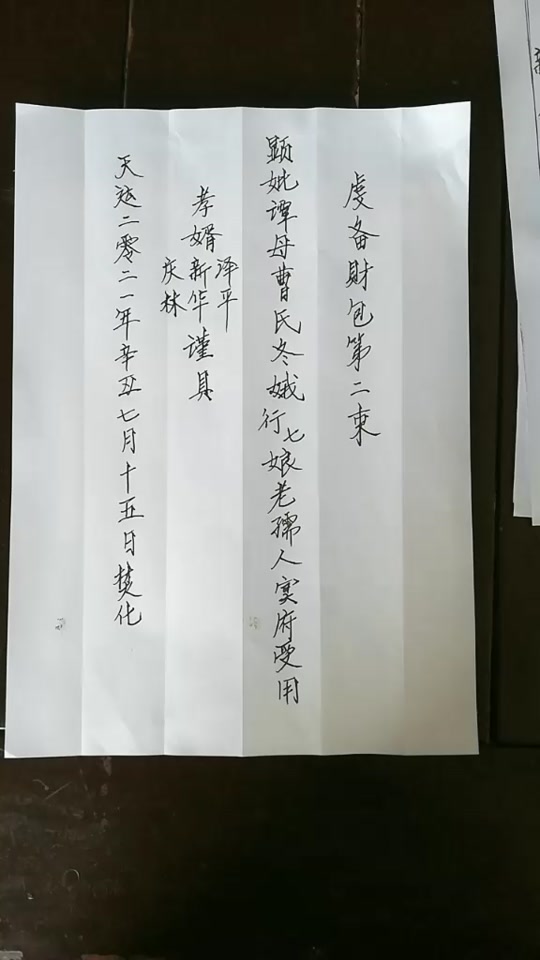 虔备財包第二束
顕妣谭母曹氏冬娥行七娘老孺人冥府受用
孝婿新华谨具
泽平
庆林
天运二零二一年辛丑七月十五日焚化